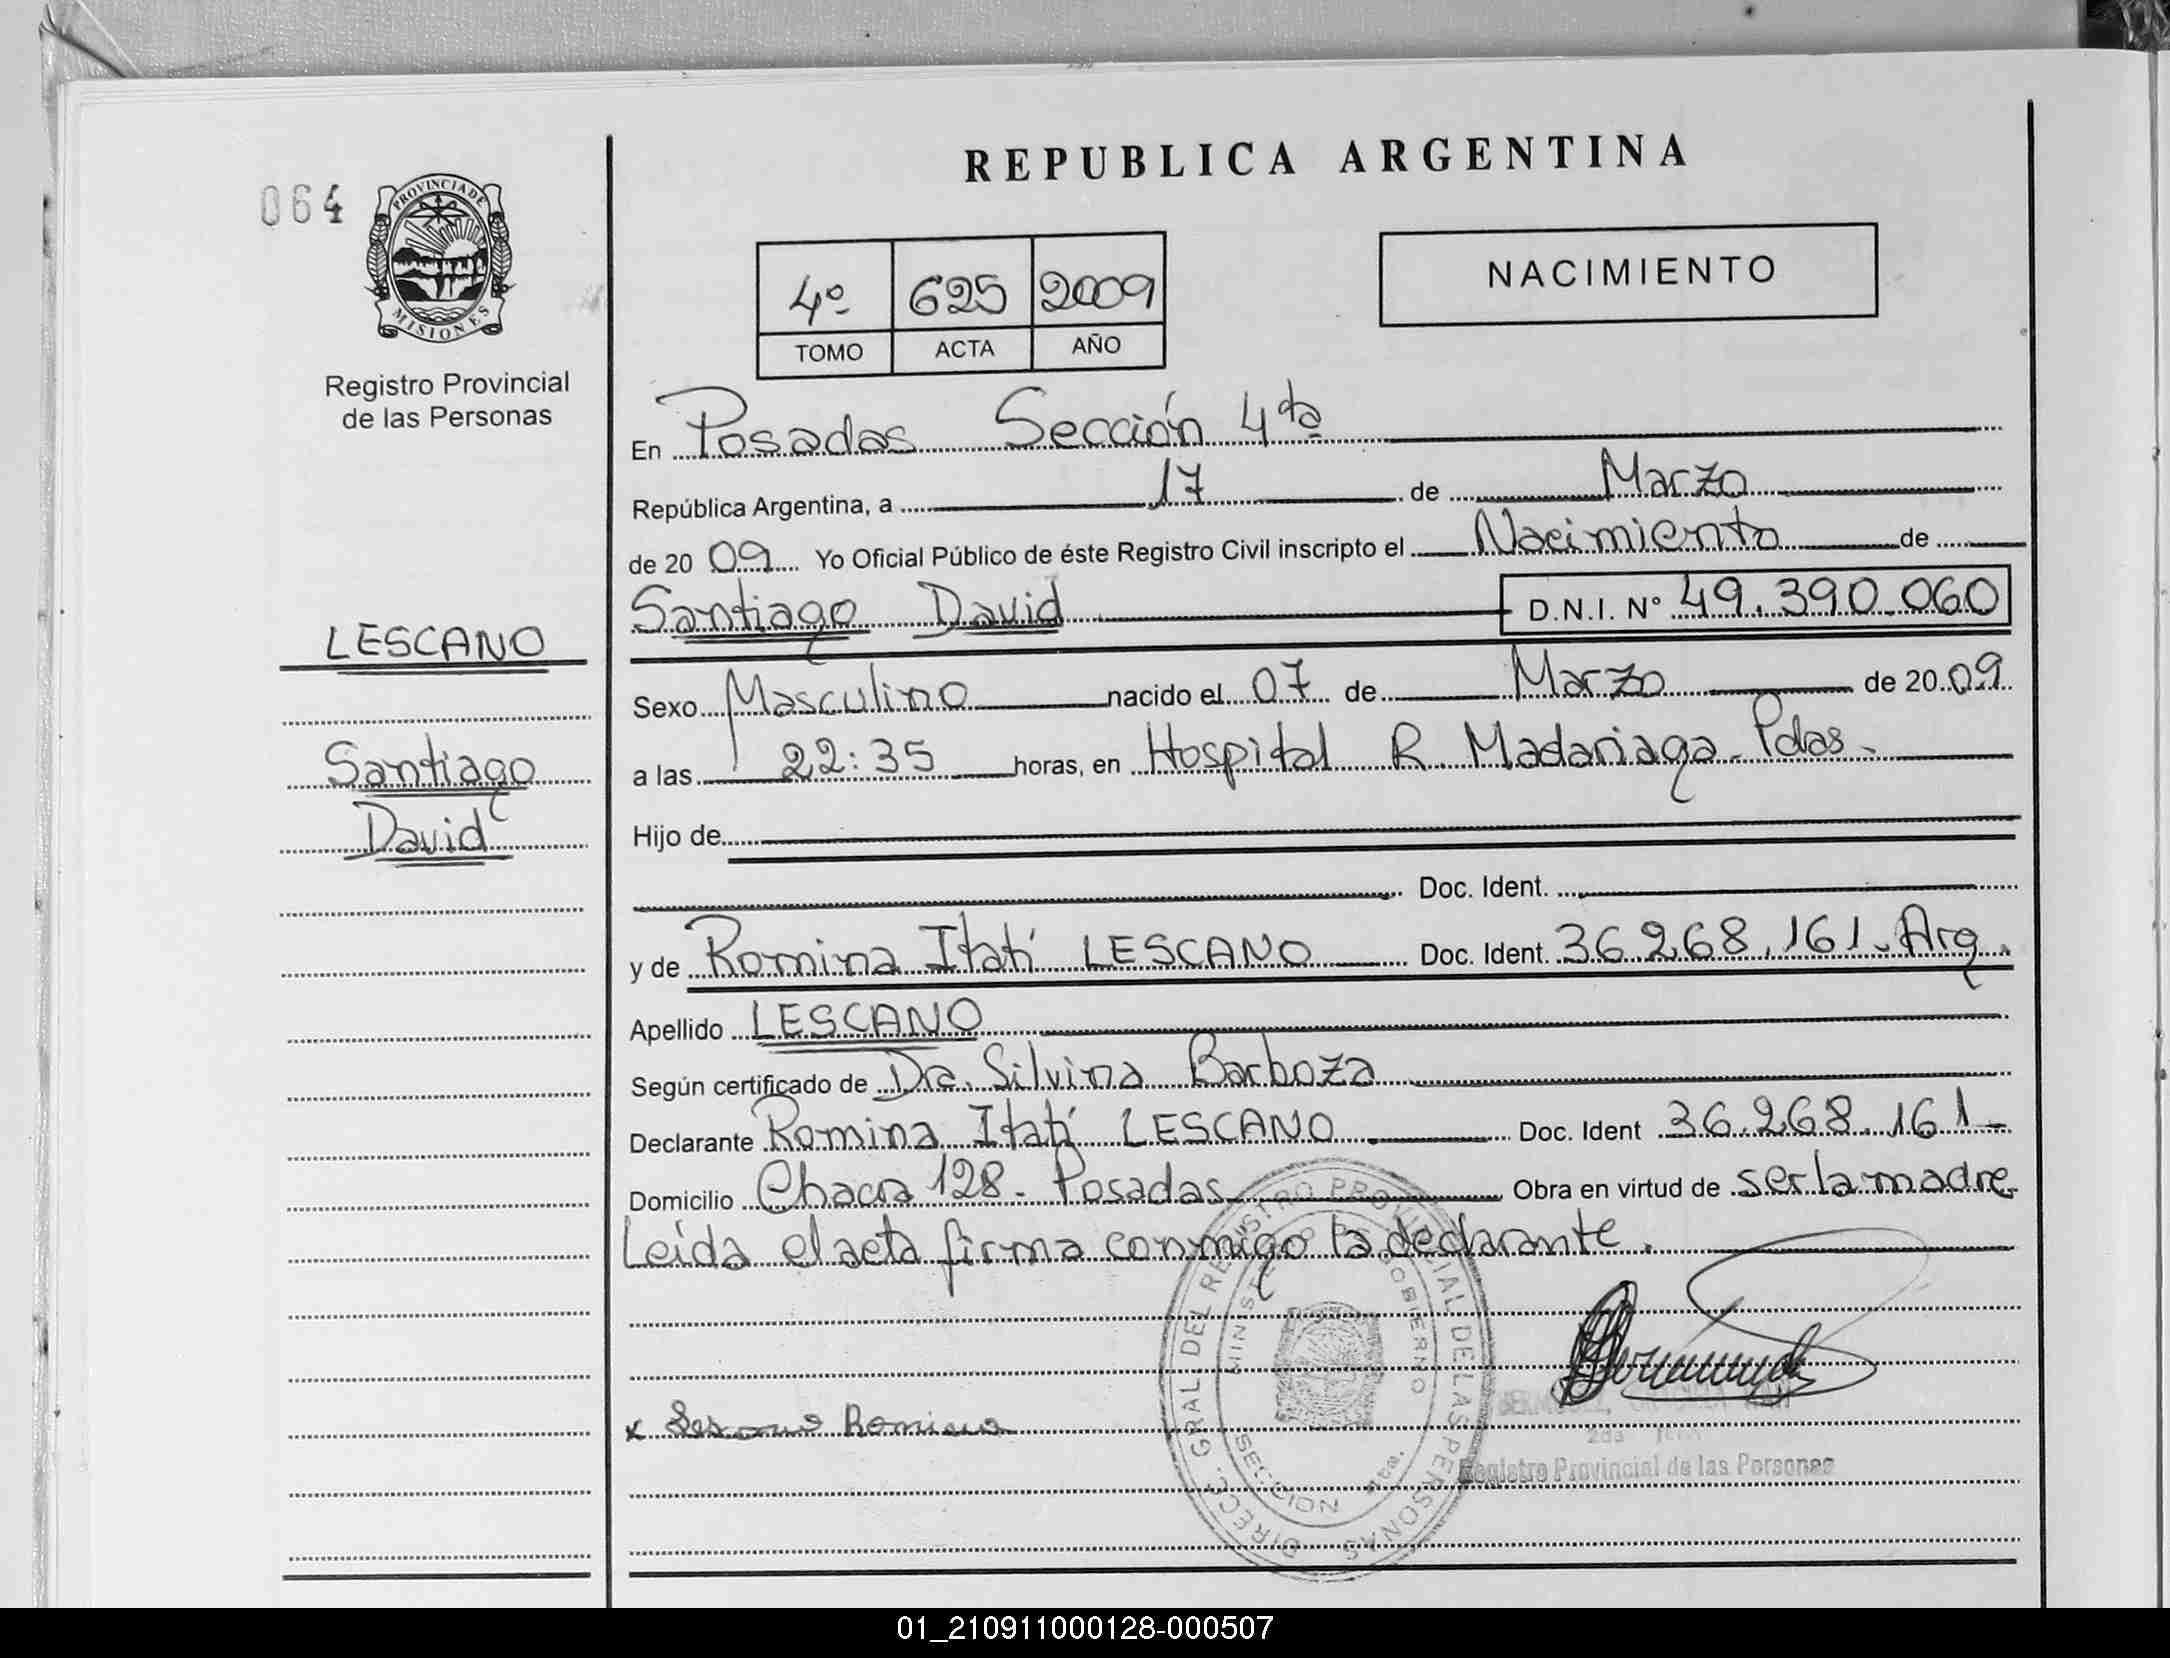 REPUBLICA ARGENTINA
064
PROVINCIA DE MISIONES
Registro Provincial
de las Personas
4º 625 2009
TOMO ACTA AÑO
NACIMIENTO
En Posadas Sección 4ta
República Argentina, a 17 de Marzo
de 20 09 Yo Oficial Público de éste Registro Civil inscripto el Nacimiento de
Santiago David D.N.I. Nº 49.390.060
LESCANO
Santiago
David
Sexo Masculino nacido el 07 de Marzo de 20 09
a las 22:35 horas, en Hospital R. Madariaga - Pdas -
Hijo de
Doc. Ident.
y de Romina Itatí LESCANO Doc. Ident. 36.268.161 - Arg.
Apellido LESCANO
Según certificado de Dra. Silvina Barboza
Declarante Romina Itatí LESCANO Doc. Ident 36.268.161 -
Domicilio Chacra 128 - Posadas Obra en virtud de ser la madre
Leída el acta firma conmigo la declarante.
DIRECC. GRAL DEL REGISTRO PROVINCIAL DE LAS PERSONAS
MINISTERIO DE GOBIERNO
SECCION 4ta.
x Lescano Romina
Registro Provincial de las Personas
01_210911000128-000507